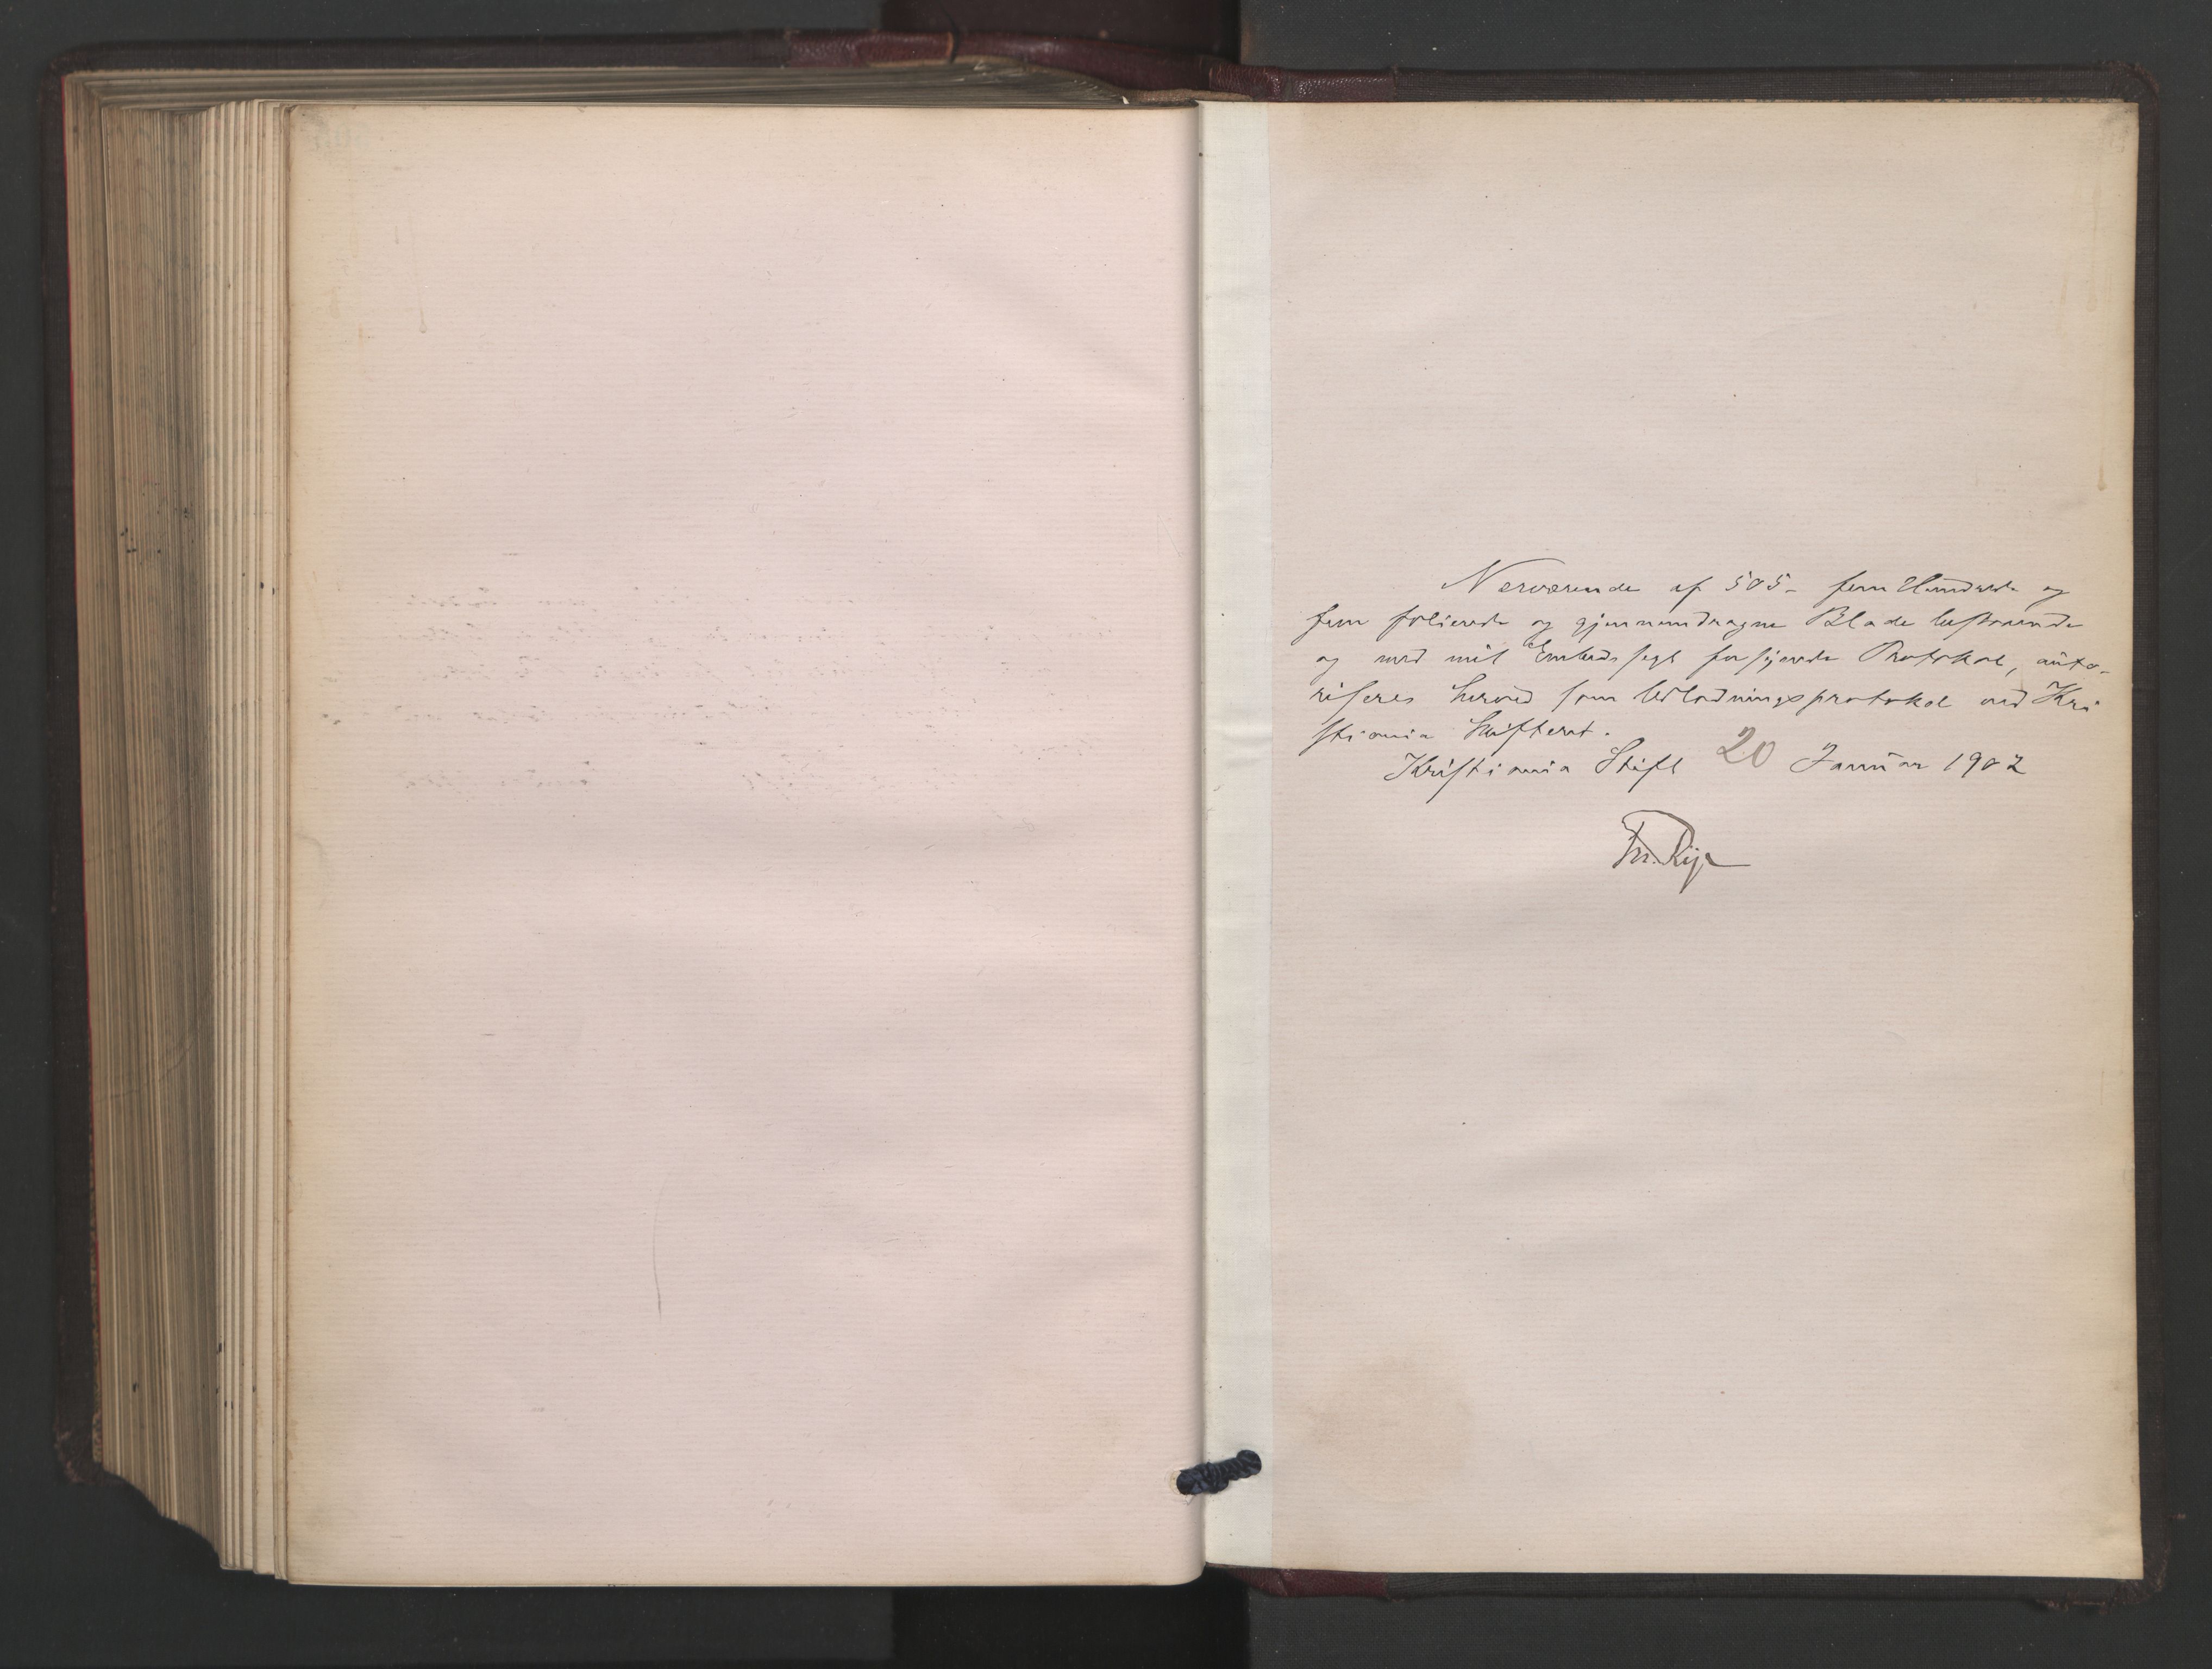 Nærværende af 505 – fem Hundrede og
fem folierede og gjennemdragne Blade bestaaende
og med mit Embeds segl forsynede Protokol, auto-
riseres herved som Udlodningsprotokol ved Kri
stiania Skifteret.
Kristiania Stift 20 Januar 1902